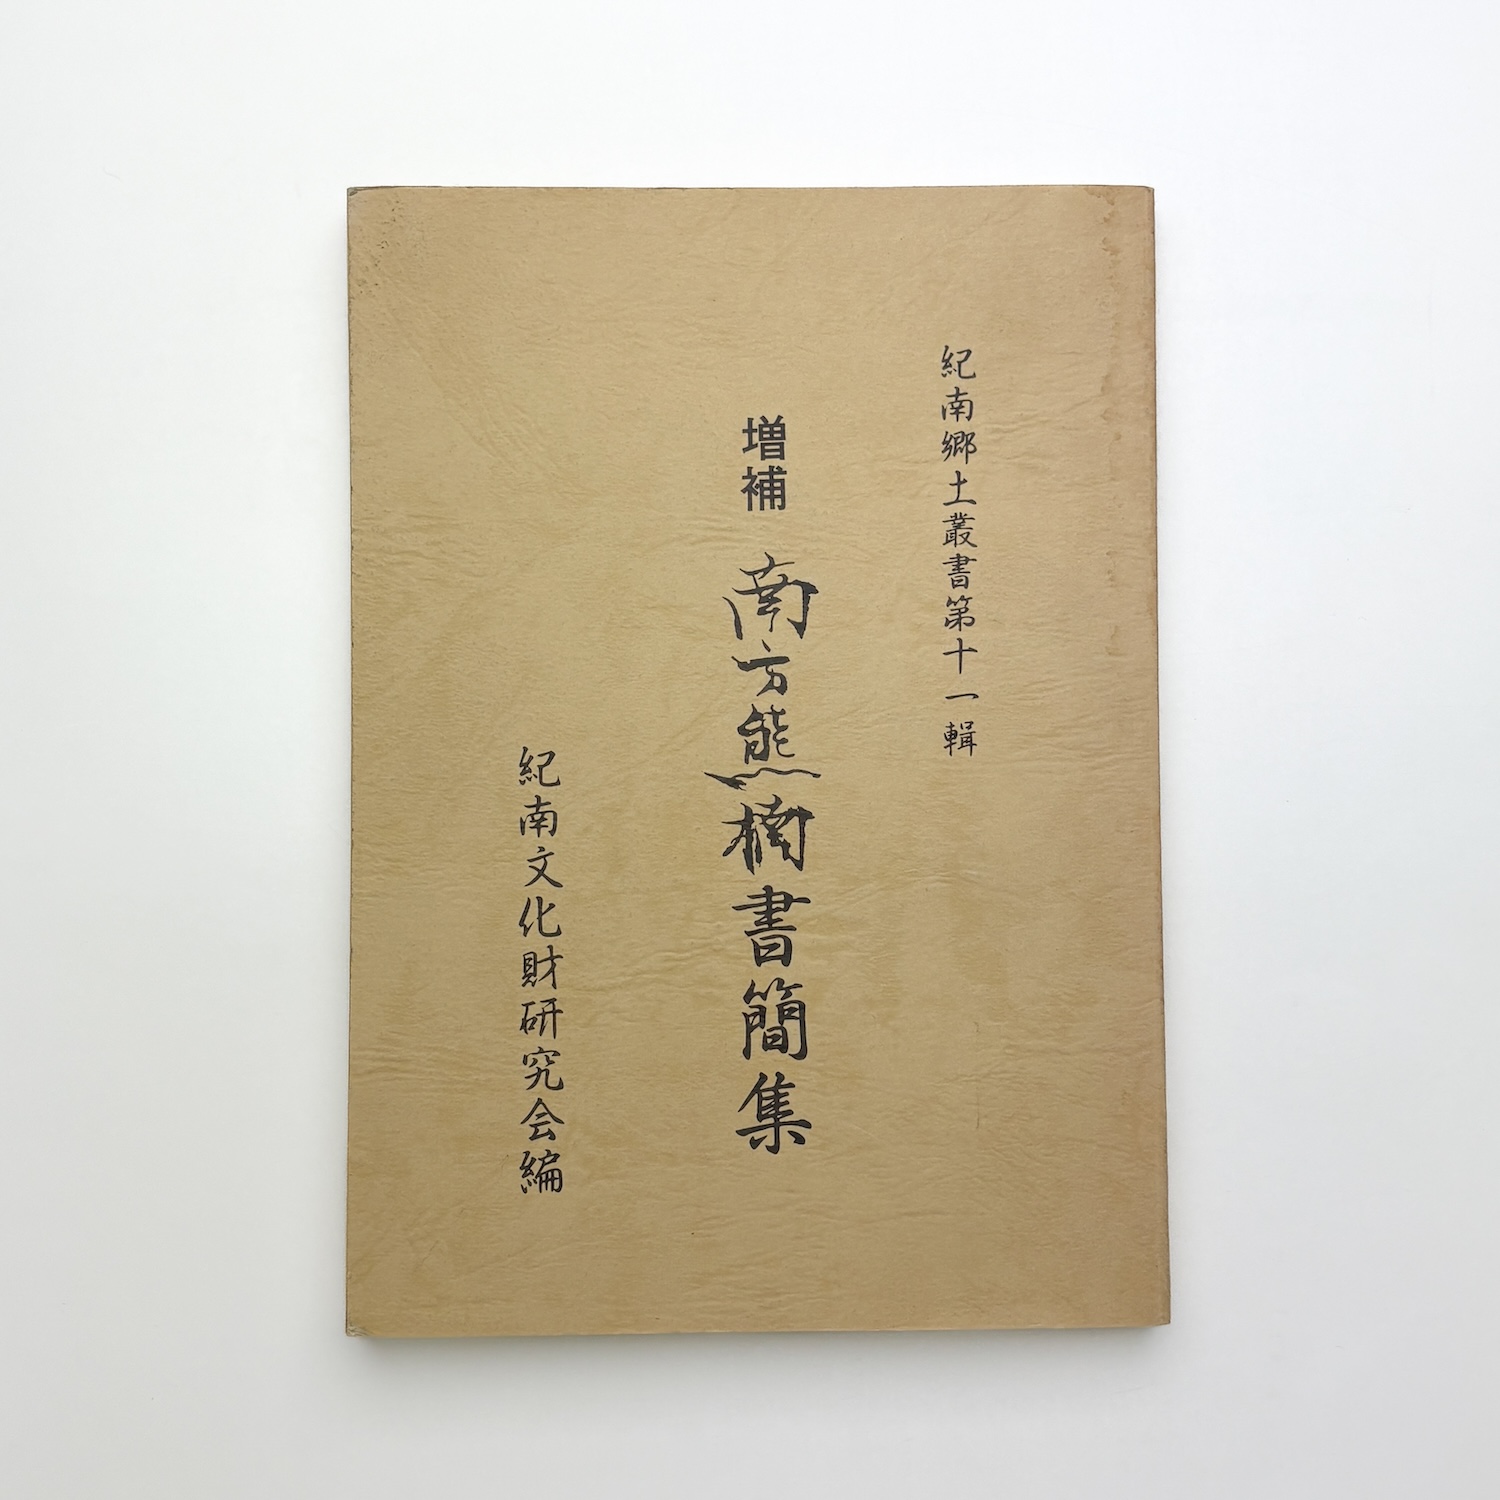 紀南郷土叢書第十一輯
増補 南方熊楠書簡集
紀南文化財研究会編